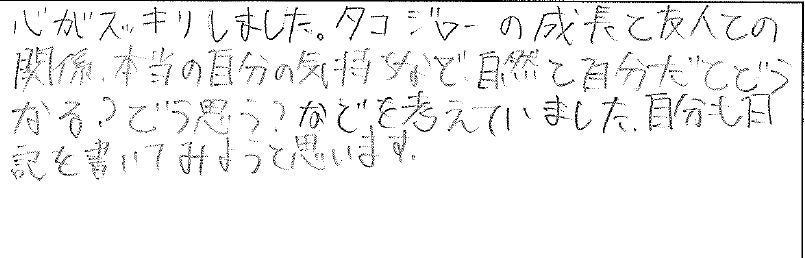 心がスッキリしました。タコジローの成長と友人との
関係、本当の自分の気持ちなど、自然と自分だとどう
なる?どう思う?などを考えていました。自分も日
記を書いてみようと思います。